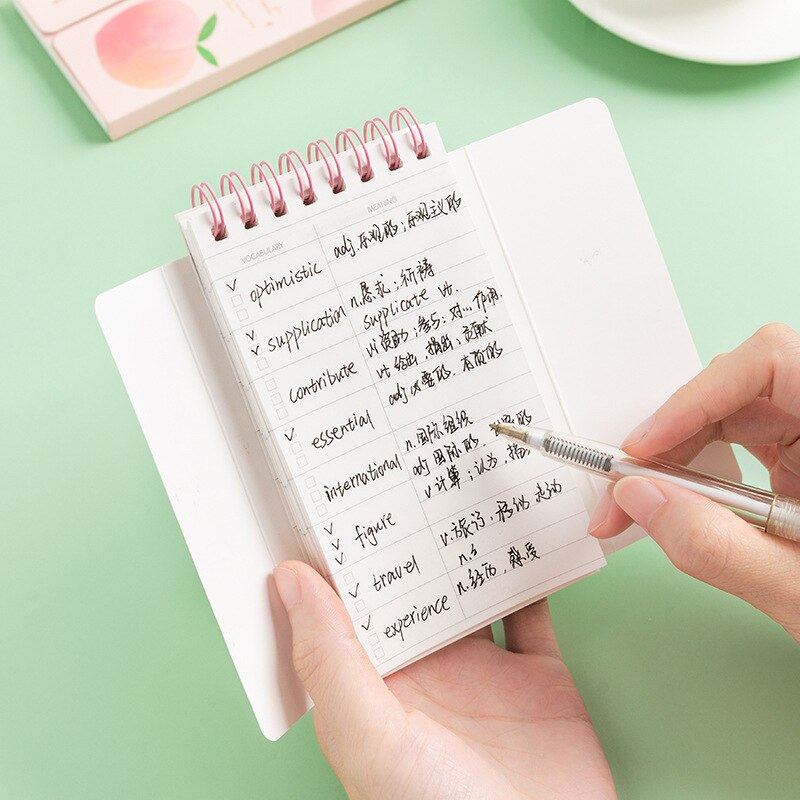 VOCABULARY MEANING
optimistic adj.乐观的；乐观主义的
supplication n.恳求；祈祷
supplicate vt.
contribute vi资助；参与；对...作用.
vt给出，捐助，贡献
essential adj必要的，本质的
international n.国际组织
adj国际的，的
figure v计算；认为，
travel v.旅行，移动 走动
n.
experience n.经历，感受